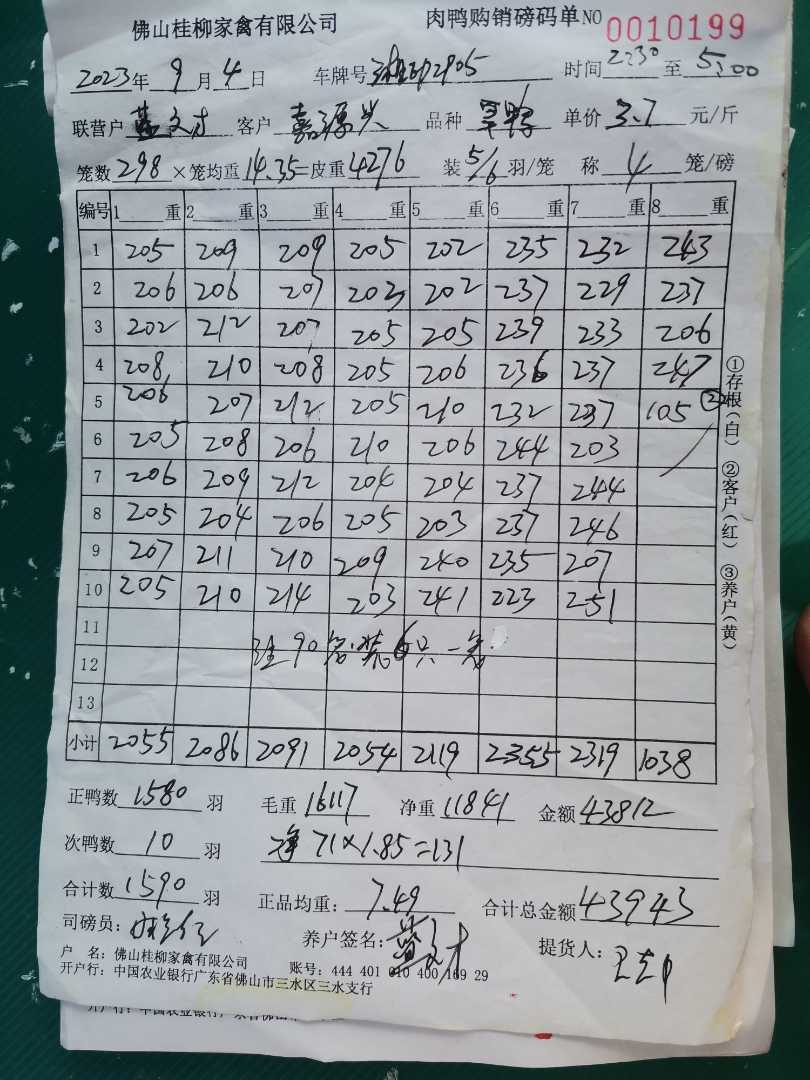 佛山桂柳家禽有限公司 肉鸭购销磅码单NO 0010199
2023年9月4日 车牌号 时间2230至5:00
联营户 客户嘉源兴 品种 单价3.7元/斤
笼数298×笼均重14.35=皮重4276 装5/6羽/笼 称4笼/磅
编号 1重 2重 3重 4重 5重 6重 7重 8重
1 205 209 209 205 202 235 232 243
2 206 206 207 203 202 237 229 237
3 202 212 207 205 205 239 233 206
4 208 210 208 205 206 236 237 247
5 206 207 212 205 210 232 237 105 ②
6 205 208 206 210 206 244 203
7 206 209 212 204 204 237 244
8 205 204 206 205 203 237 246
9 207 211 210 209 240 235 207
10 205 210 214 203 241 223 251
11
注90笼装6只一笼
12
13
小计 2055 2086 2091 2054 2119 2355 2319 1038
①存根(白) ②客户(红) ③养户(黄)
正鸭数1580羽 毛重16117 净重11841 金额43812
次鸭数10羽 净71×1.85=131
合计数1590羽 正品均重:7.49 合计总金额43943
司磅员: 养户签名: 提货人:
户 名:佛山桂柳家禽有限公司 账号:444 401 010 400 169 29
开户行:中国农业银行广东省佛山市三水区三水支行